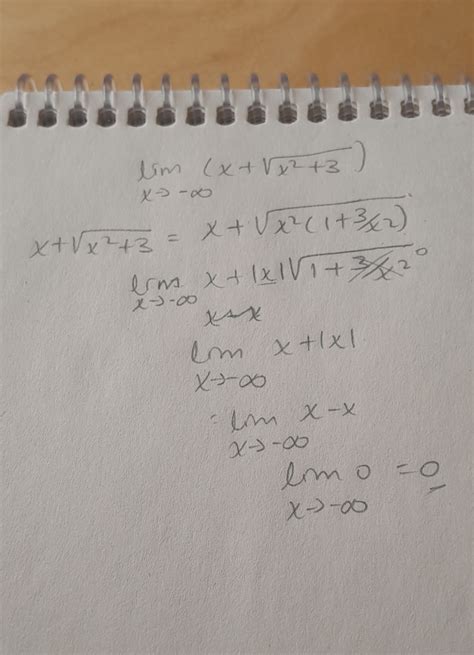 lim (x+√(x²+3))
x→-∞
x+√(x²+3) = x+√(x²(1+3/x2))
lim x+|x|√(1+3/x2) 0
x→-∞
x-x
lim x+|x|
x→-∞
= lim x-x
x→-∞
lim 0 = 0
x→-∞